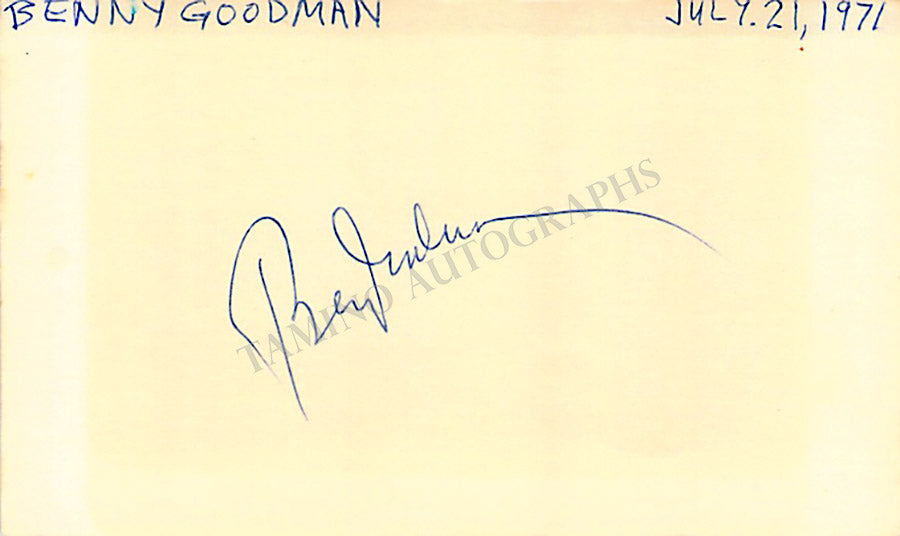 BENNY GOODMAN JULY. 21, 1971
Benny Goodman
TAMINO AUTOGRAPHS